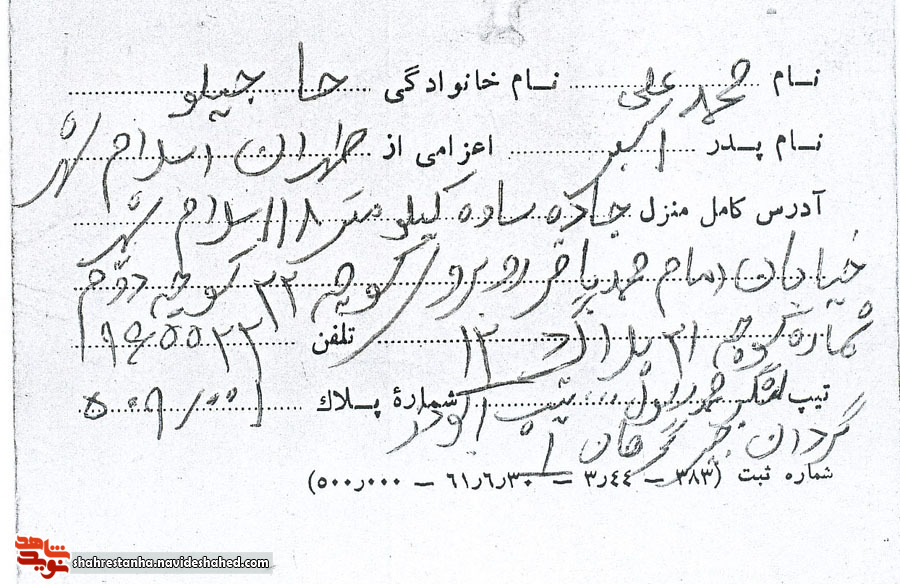 نـام محمد علی نـام خانوادگی حاجیلو
نام پـدر اکبر اعزامی از طهران اسلام شهر
آدرس کامل منزل جاده ساده کیلو متر ۱۸ اسلام شهر
خیابان امام محمد باقر روبروی کوچه ۲۲ کوچه دوم
شماره کوچه ۳۱ پلاک ۱۳ تلفن
تیپ لشگر محمد رسول تیپ ابوذر شمارهٔ پـلاك
گردان
شماره ثبت (۳۸۳ – ۳ر۴۴ – ۶۱ر۶ر۳۰ – ۵۰۰ر۰۰۰)
شاهد
نوید
shahrestanha.navideshahed.com